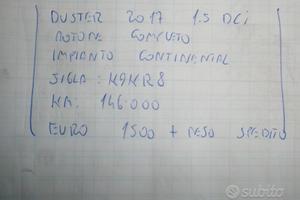 DUSTER 2017 1.5 DCi
MOTORE COMPLETO
IMPIANTO CONTINENTAL
SIGLA: K9KR8
KM: 146.000
EURO 1500 + RESO SPEDITO
subito